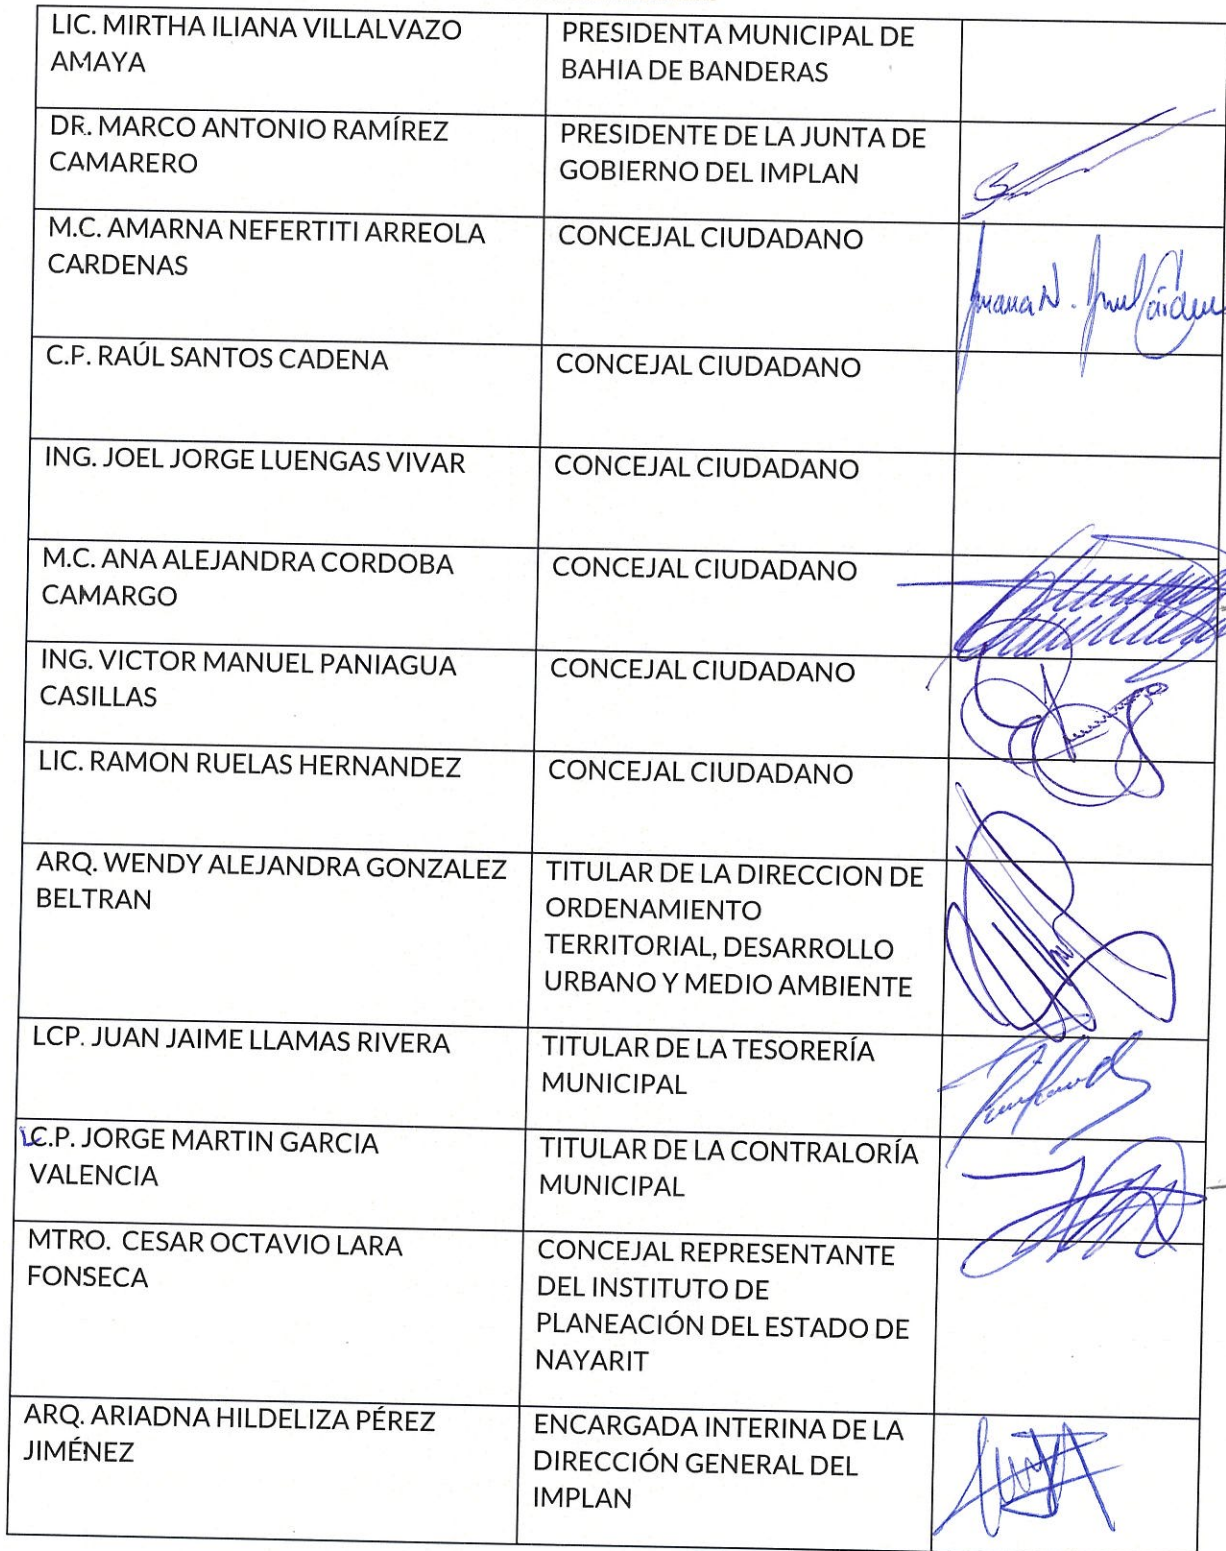 LIC. MIRTHA ILIANA VILLALVAZO
AMAYA
PRESIDENTA MUNICIPAL DE
BAHIA DE BANDERAS
DR. MARCO ANTONIO RAMÍREZ
CAMARERO
PRESIDENTE DE LA JUNTA DE
GOBIERNO DEL IMPLAN
M.C. AMARNA NEFERTITI ARREOLA
CARDENAS
CONCEJAL CIUDADANO
C.P. RAÚL SANTOS CADENA
CONCEJAL CIUDADANO
ING. JOEL JORGE LUENGAS VIVAR
CONCEJAL CIUDADANO
M.C. ANA ALEJANDRA CORDOBA
CAMARGO
CONCEJAL CIUDADANO
ING. VICTOR MANUEL PANIAGUA
CASILLAS
CONCEJAL CIUDADANO
LIC. RAMON RUELAS HERNANDEZ
CONCEJAL CIUDADANO
ARQ. WENDY ALEJANDRA GONZALEZ
BELTRAN
TITULAR DE LA DIRECCION DE
ORDENAMIENTO
TERRITORIAL, DESARROLLO
URBANO Y MEDIO AMBIENTE
LCP. JUAN JAIME LLAMAS RIVERA
TITULAR DE LA TESORERÍA
MUNICIPAL
LC.P. JORGE MARTIN GARCIA
VALENCIA
TITULAR DE LA CONTRALORÍA
MUNICIPAL
MTRO. CESAR OCTAVIO LARA
FONSECA
CONCEJAL REPRESENTANTE
DEL INSTITUTO DE
PLANEACIÓN DEL ESTADO DE
NAYARIT
ARQ. ARIADNA HILDELIZA PÉREZ
JIMÉNEZ
ENCARGADA INTERINA DE LA
DIRECCIÓN GENERAL DEL
IMPLAN